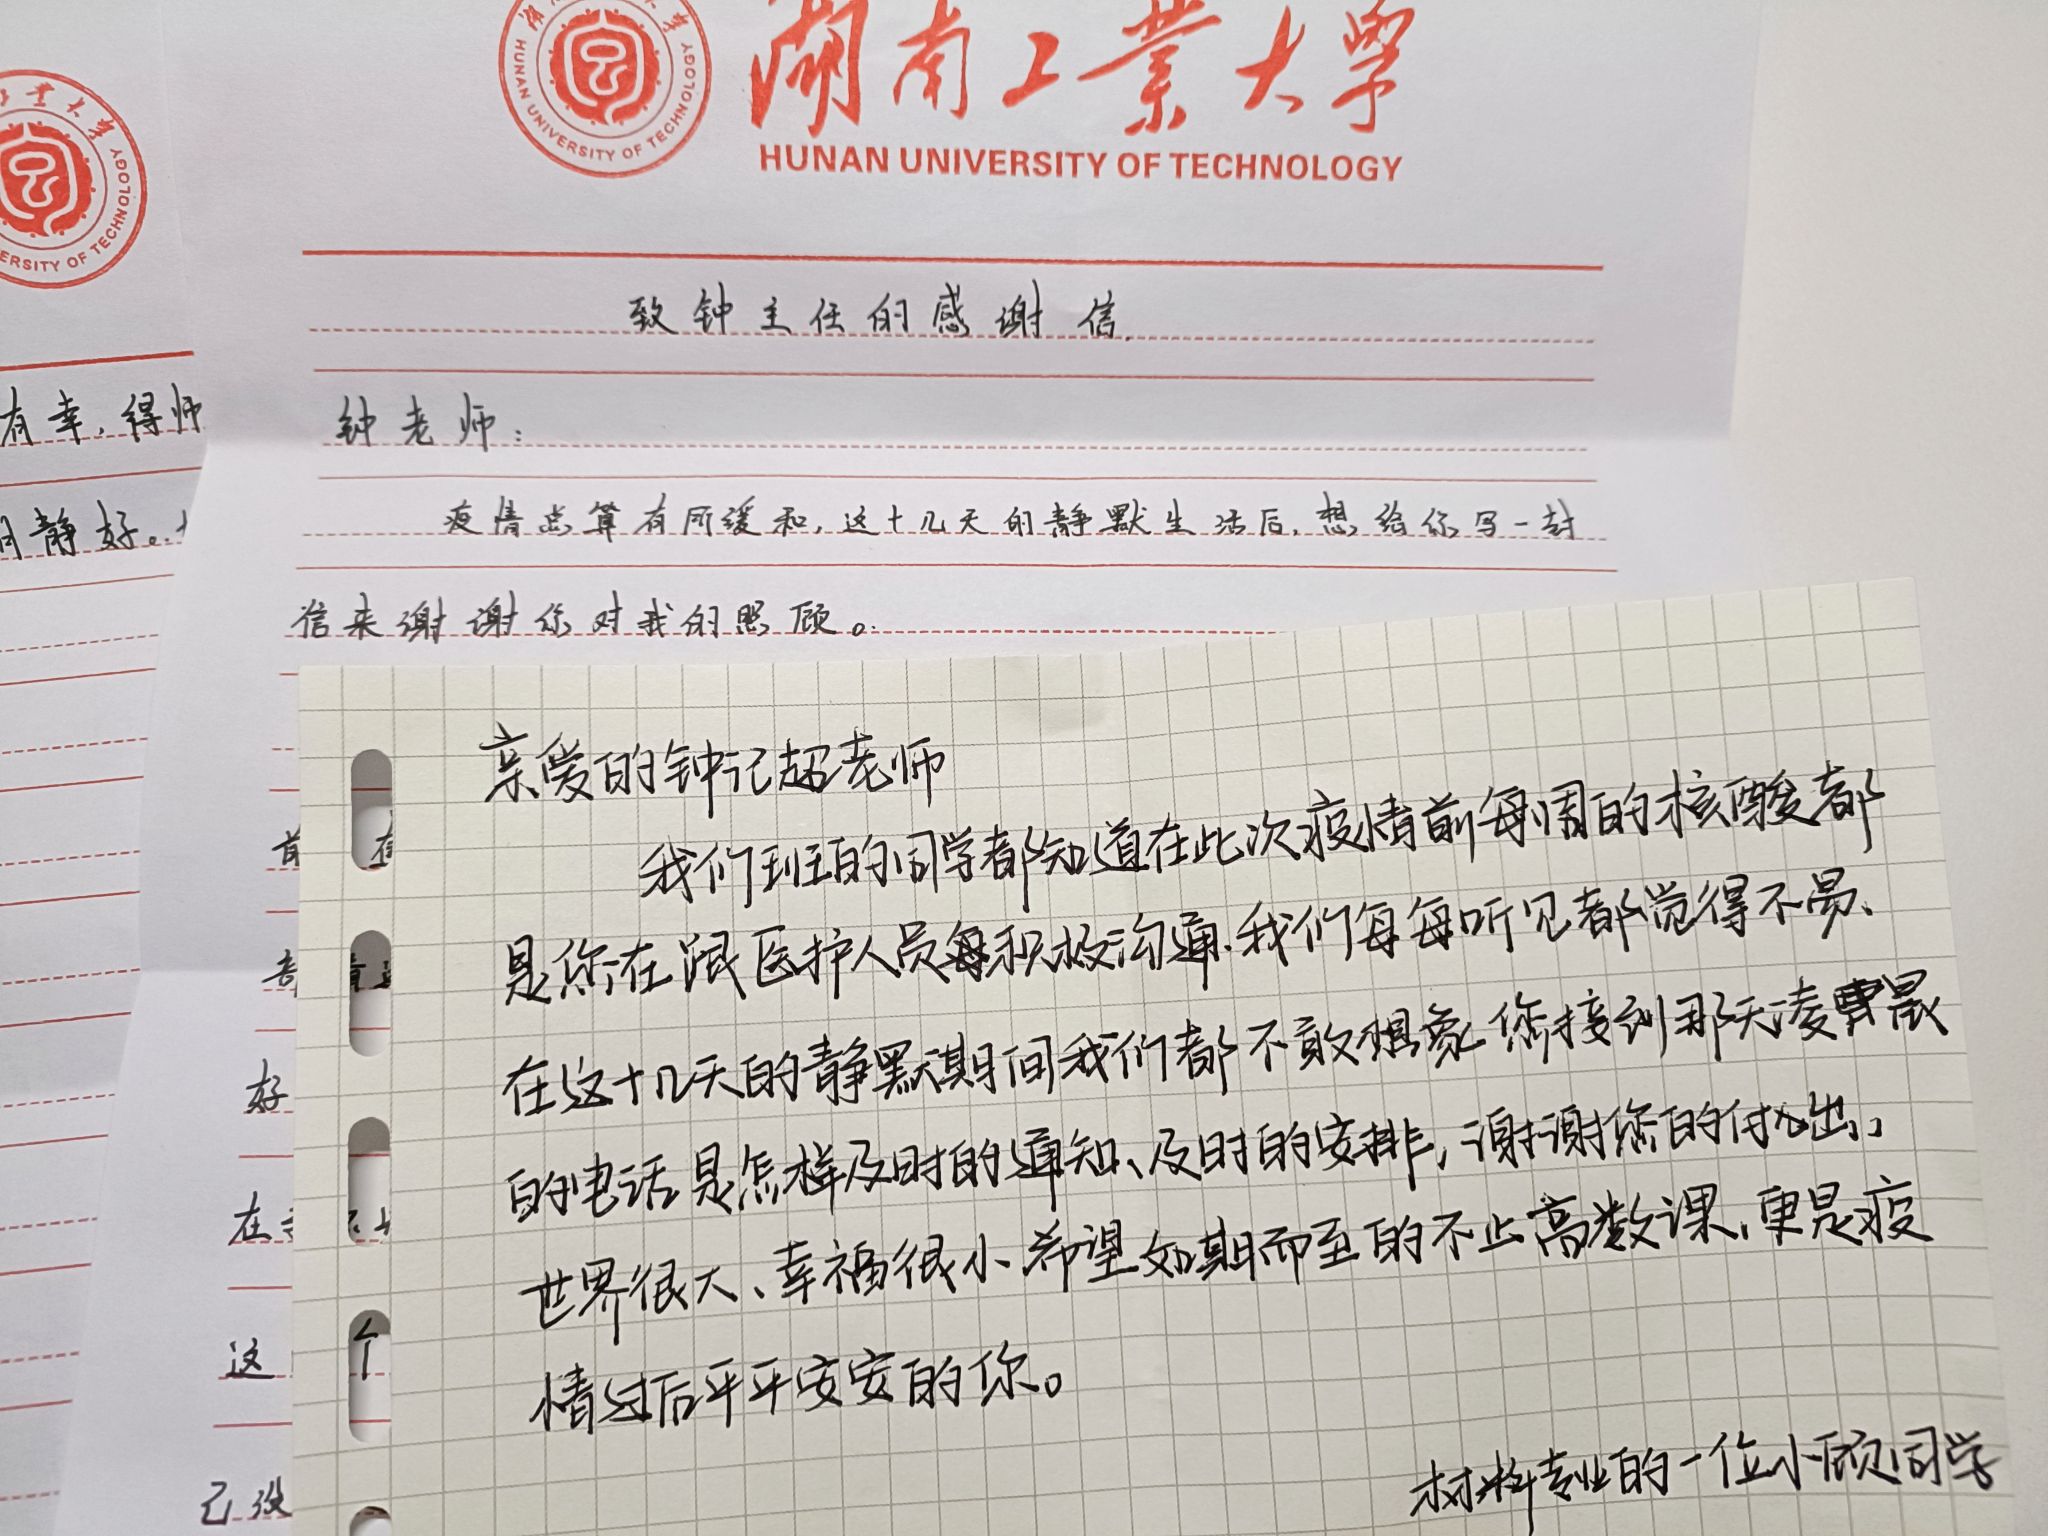 湖南工業大學
HUNAN UNIVERSITY OF TECHNOLOGY
HUNAN UNIVERSITY OF TECHNOLOGY
工業大學
ERSITY OF TECHNOLOGY
致钟主任的感谢信.
有幸,得师
钟老师:
静好。
疫情总算有所缓和,这十几天的静默生活后,想给你写一封
信来谢谢你对我的照顾。
好
在
这 个
己没
亲爱的钟记超老师
我们班的同学都知道在此次疫情前每周的核酸都
是您在跟医护人员积极沟通.我们每每听见都觉得不易、
在这十几天的静默期间我们都不敢想象您接到那天凌晨
的电话是怎样及时的通知、及时的安排,谢谢您的付出。
世界很大、幸福很小.希望如期而至的不止高数课、更是疫
情过后平平安安的你。
材料专业的一位小顾同学